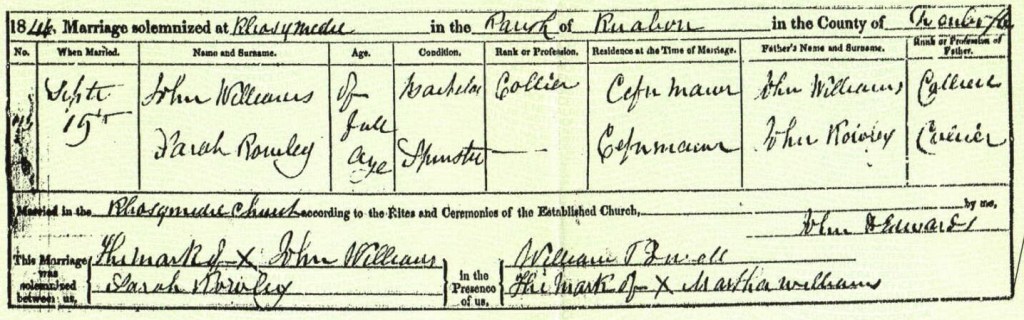 1844. Marriage solemnized at Rhosymedre in the Parish of Ruabon in the County of Denbigh
No. When Married. Name and Surname. Age. Condition. Rank or Profession. Residence at the Time of Marriage. Father's Name and Surname. Rank or Profession of Father.
Septr 15th John Williams Of Full Age Bachelor Collier Cefn mawr John Williams Collier
Sarah Rowley Spinster — Cefn mawr John Rowley Collier
Married in the Rhosymedre Church according to the Rites and Ceremonies of the Established Church, by me,
John D Edwards
This Marriage was solemnized between us, The mark of X John Williams
Sarah Rowley
in the Presence of us, William
The Mark of X Martha Williams